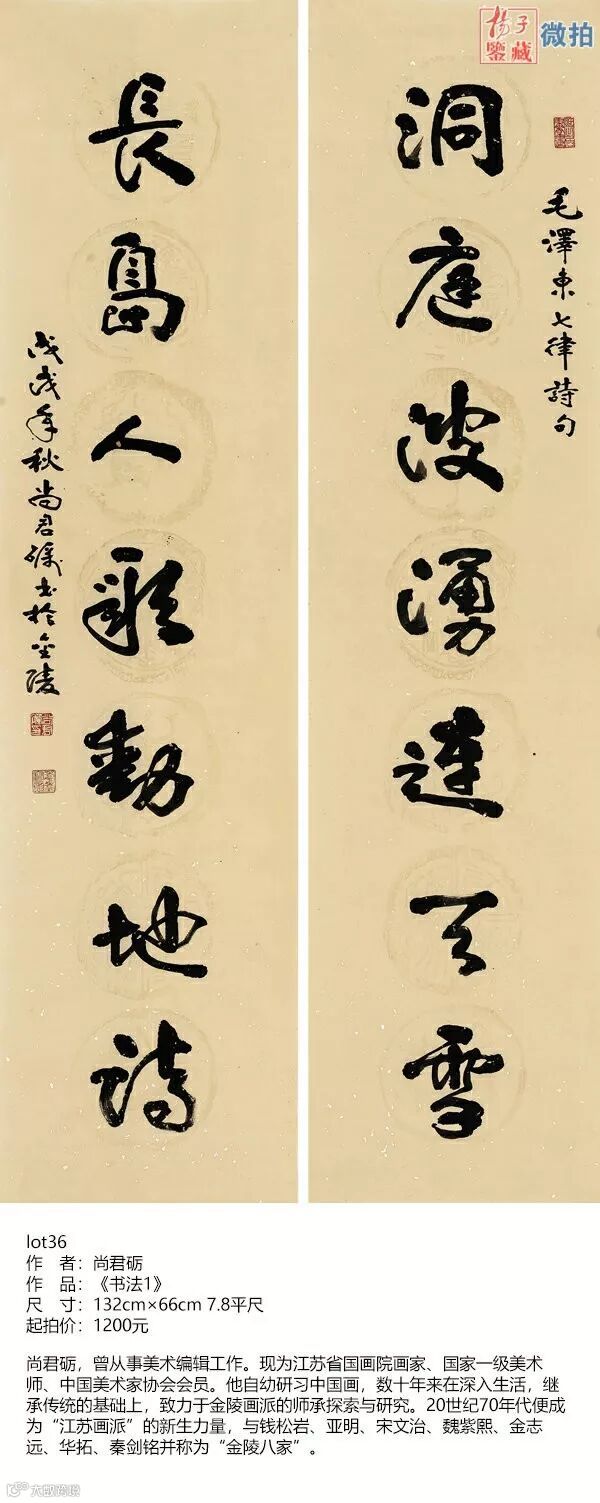 杨子
鉴藏
微拍
毛澤東七律詩句
洞庭波湧連天雪
長島人歌動地詩
戊戌年秋尚君礪书於金陵
lot36
作 者：尚君砺
作 品：《书法1》
尺 寸：132cm×66cm 7.8平尺
起拍价：1200元
尚君砺，曾从事美术编辑工作。现为江苏省国画院画家、国家一级美术
师、中国美术家协会会员。他自幼研习中国画，数十年来在深入生活，继
承传统的基础上，致力于金陵画派的师承探索与研究。20世纪70年代便成
为“江苏画派”的新生力量，与钱松岩、亚明、宋文治、魏紫熙、金志
远、华拓、秦剑铭并称为“金陵八家”。